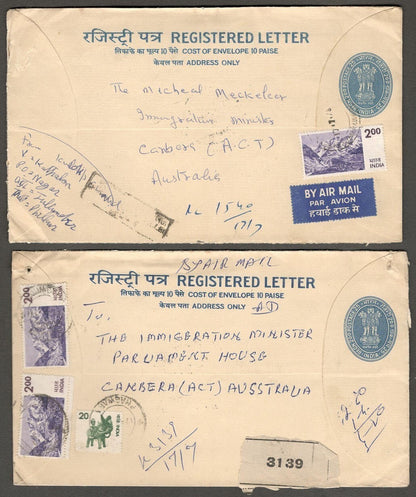 रजिस्ट्री पत्र REGISTERED LETTER
लिफाफे का मूल्य 10 पैसे COST OF ENVELOPE 10 PAISE
केवल पता ADDRESS ONLY
The Micheal Meckeleer
Immigration Minister
Canbera (A.C.T)
Australia
2.00
भारत INDIA
BY AIR MAIL
PAR AVION
हवाई डाक से
From
P.O. Nagar
1540
17/7
BY AIR MAIL
रजिस्ट्री पत्र REGISTERED LETTER
लिफाफे का मूल्य 10 पैसे COST OF ENVELOPE 10 PAISE
केवल पता ADDRESS ONLY AD
To,
THE IMMIGERATION MINISTER
PARLIAMENT HOUSE
CANBERA (ACT) AUSSTRALIA
2.00
भारत INDIA
2.00
भारत INDIA
20
भारत INDIA
3139
17/7
3139